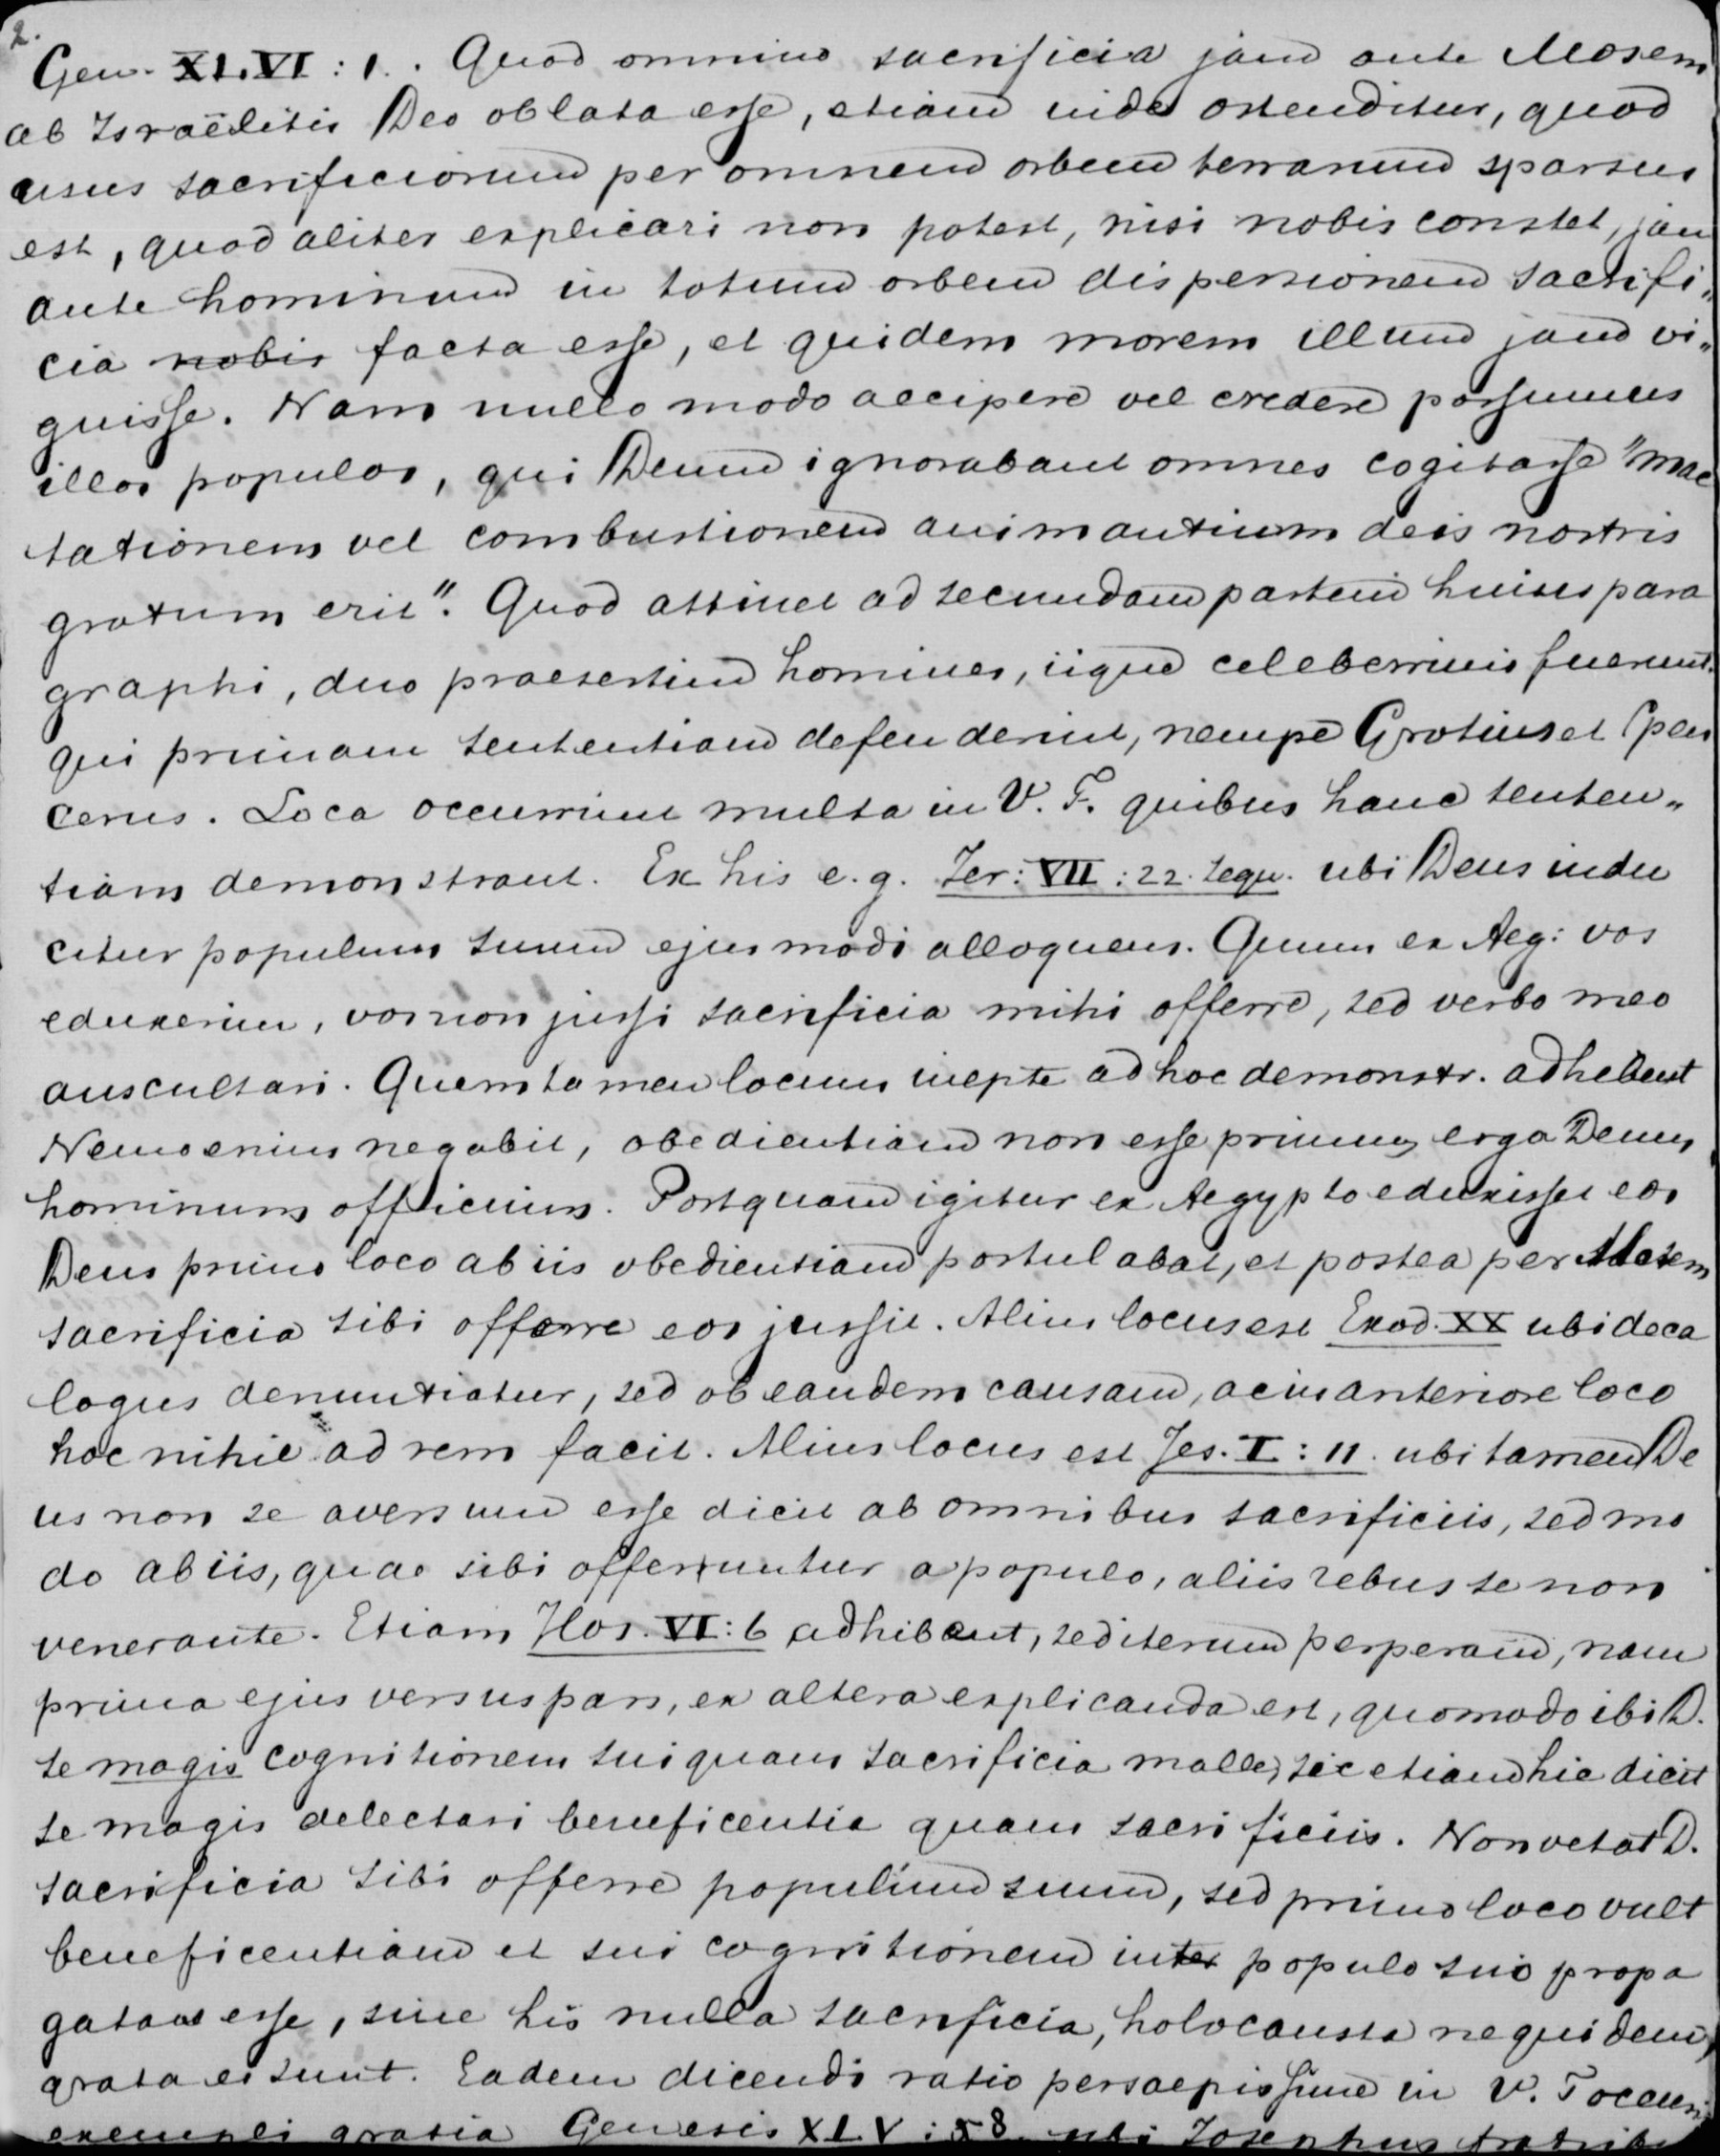 2.
Gen. XLVI : 1. . Quod omnino sacrificia jam ante Mosem
ab Israëlitis Deo oblata esse, etiam inde ostenditur, quod
usus sacrificiorum per omnem orbem terrarum sparsus
est, quod aliter explicari non potest, nisi nobis constet, jam
ante hominum in totum orbem dispersionem sacrifi„
cia nobis facta esse, et quidem morem illum jam vi„
guisse. Nam nullo modo accipere vel credere possumus
illos populos, qui Deum ignorabant omnes cogitasse "mac
tationem vel combustionem animantium deis nostris
gratum erit". Quod attinet ad secundam partem huius para
graphi, duo praesertim homines, iique celeberrimis fuerunt.
qui primam sententiam defenderint, nempe Grotius et Spen
cerus. Loca occurrunt multa in V. T. quibus hanc senten„
tiam demonstrant. Ex his e.g. Jer: VII : 22. sequ. ubi Deus indu
citur populum suum ejusmodi alloquens. Quum ex Aeg: vos
eduxerim, vos non jussi sacrificia mihi offerre, sed verbo meo
auscultari. Quem tamen locum inepte ad hoc demonstr. adhibent
Nemo enim negabit, obedientiam non esse primum erga Deum
hominum officium. Postquam igitur ex Aegypto eduxisset eos
Deus primo loco ab iis obedientiam postulabat, et postea per Mosem
sacrificia sibi offerre eos jussit. Alius locus est Exod. XX ubi deca
logus denuntiatur, sed ob eandem causam, ac in anteriore loco
hoc nihil ad rem facit. Alius locus est Jes. I : 11. ubi tamen De
us non se aversum esse dicit ab omnibus sacrificiis, sed mo
do ab iis, quae sibi offeruntur a populo, aliis rebus se non
venerante. Etiam Hos. VI : 6 adhibent, sed iterum perperam, nam
prima ejus versus pars, ex altera explicanda est, quomodo ibi D.
se magis cognitionem sui quam sacrificia malle, sic etiam hic dicit
se magis delectari beneficentia quam sacrificiis. Non vetat D.
sacrificia sibi offerre populum suum, sed primo loco vult
beneficentiam et sui cognitionem inter populo suo propa
gatam esse, sine his nulla sacrificia, holocausta ne quidem,
grata ei sunt. Eadem dicendi ratio persaepissime in V. T occurr
exempli gratia Genesis XLV : 58 ubi Josephus fratrib